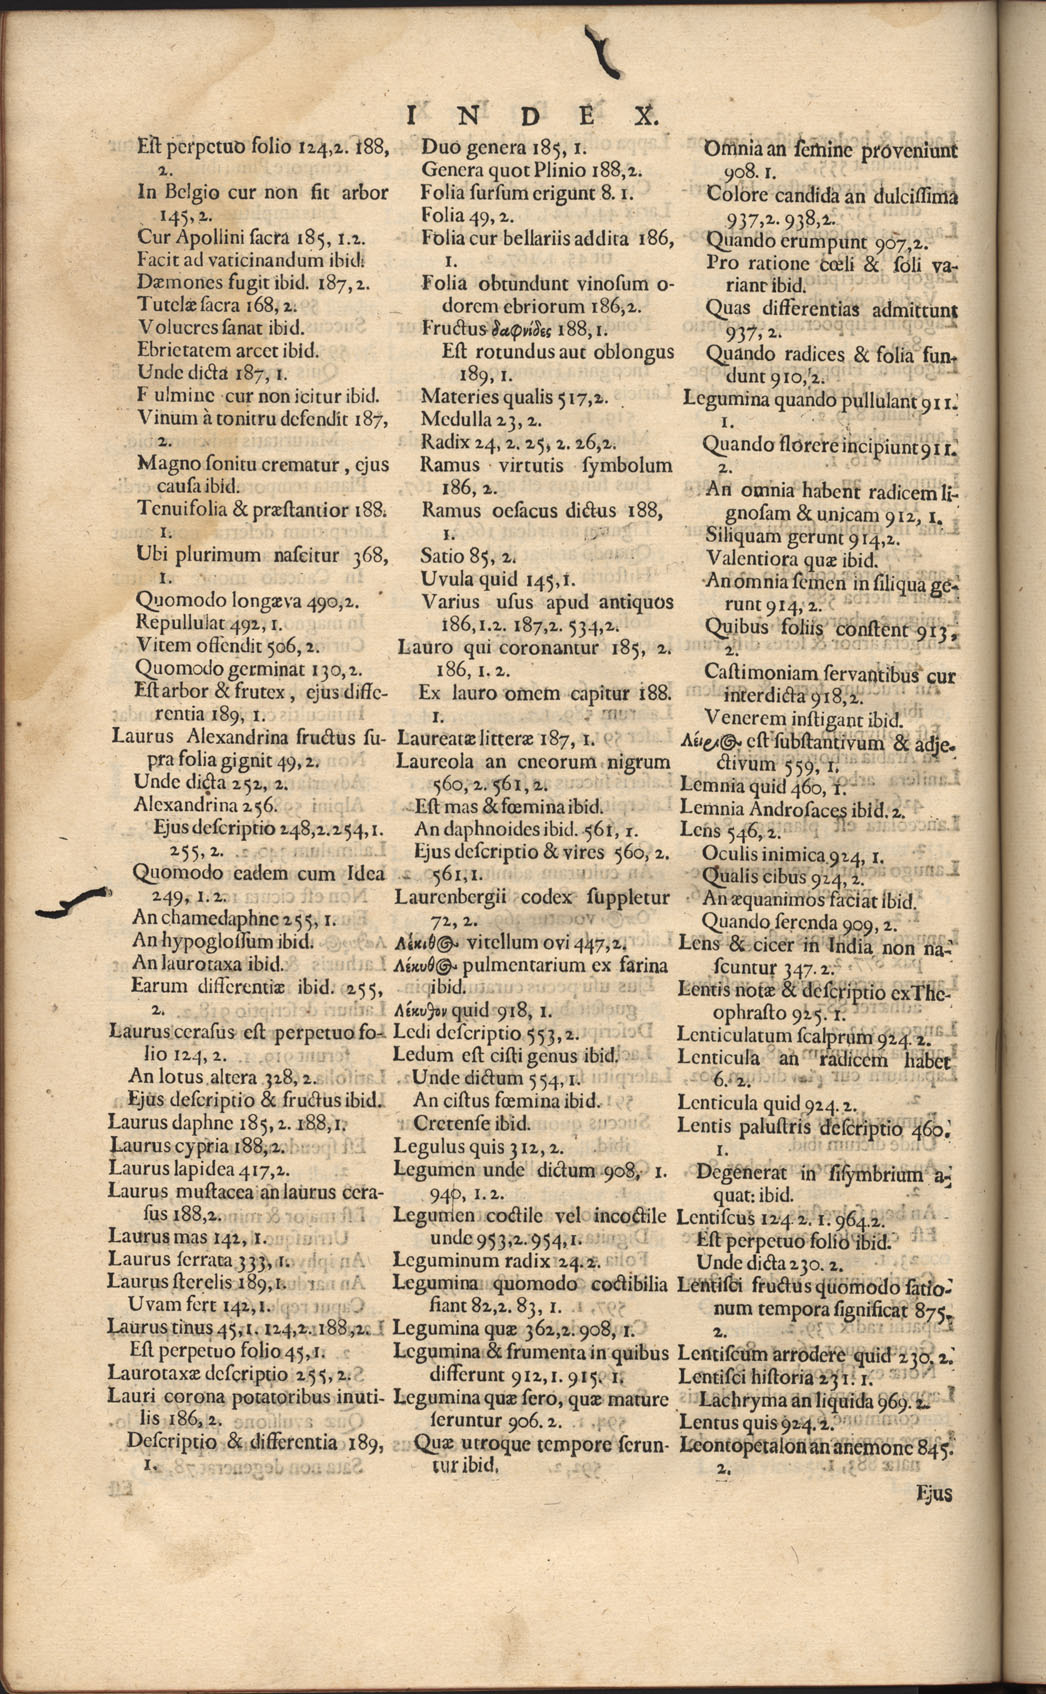 INDEX.
Est perpetuo folio 124,2. 188,
2.
In Belgio cur non sit arbor
145,2.
Cur Apollini sacra 185, 1.2.
Facit ad vaticinandum ibid.
Dæmones fugit ibid. 187,2.
Tutelæ sacra 168, 2.
Volucres sanat ibid.
Ebrietatem arcet ibid.
Unde dicta 187, 1.
Fulmine cur non icitur ibid.
Vinum à tonitru defendit 187,
2.
Magno sonitu crematur, ejus
causa ibid.
Tenuifolia & præstantior 188.
1.
Ubi plurimum nascitur 368,
1.
Quomodo longæva 490,2.
Repullulat 492, 1.
Vitem offendit 506, 2.
Quomodo germinat 130,2.
Est arbor & frutex, ejus diffe-
rentia 189, 1.
Laurus Alexandrina fructus su-
pra folia gignit 49, 2.
Unde dicta 252, 2.
Alexandrina 256.
Ejus descriptio 248,2.254,1.
255, 2.
Quomodo eadem cum Idea
249, 1.2.
An chamedaphne 255, 1.
An hypoglossum ibid.
An laurotaxa ibid.
Earum differentiæ ibid. 255,
2.
Laurus cerasus est perpetuo fo-
lio 124, 2.
An lotus altera 328, 2.
Ejus descriptio & fructus ibid.
Laurus daphne 185, 2. 188,1.
Laurus cypria 188,2.
Laurus lapidea 417,2.
Laurus mustacea an laurus cera-
sus 188,2.
Laurus mas 142, 1.
Laurus serrata 333, 1.
Laurus sterelis 189,1.
Uvam fert 142,1.
Laurus tinus 45,1. 124,2. 188,2.
Est perpetuo folio 45,1.
Laurotaxæ descriptio 255, 2.
Lauri corona potatoribus inuti-
lis 186, 2.
Descriptio & differentia 189,
1.
Duo genera 185, 1.
Genera quot Plinio 188,2.
Folia sursum erigunt 8. 1.
Folia 49, 2.
Folia cur bellariis addita 186,
1.
Folia obtundunt vinosum o-
dorem ebriorum 186,2.
Fructus δαφνίδες 188,1.
Est rotundus aut oblongus
189, 1.
Materies qualis 517,2.
Medulla 23, 2.
Radix 24, 2. 25, 2. 26,2.
Ramus virtutis symbolum
186, 2.
Ramus oesacus dictus 188,
1.
Satio 85, 2.
Uvula quid 145,1.
Varius usus apud antiquos
186,1.2. 187,2. 534,2.
Lauro qui coronantur 185, 2.
186, 1.2.
Ex lauro omem capitur 188.
1.
Laureatæ litteræ 187, 1.
Laureola an cneorum nigrum
560, 2. 561, 2.
Est mas & fœmina ibid.
An daphnoides ibid. 561, 1.
Ejus descriptio & vires 560, 2.
561,1.
Laurenbergii codex suppletur
72, 2.
Λέκιθος vitellum ovi 447,2.
Λέκυθος pulmentarium ex farina
ibid.
Λέκυθον quid 918, 1.
Ledi descriptio 553,2.
Ledum est cisti genus ibid.
Unde dictum 554,1.
An cistus fœmina ibid.
Cretense ibid.
Legulus quis 312, 2.
Legumen unde dictum 908, 1.
940, 1.2.
Legumen coctile vel incoctile
unde 953,2. 954,1.
Leguminum radix 24.2.
Legumina quomodo coctibilia
fiant 82,2. 83, 1.
Legumina quæ 362,2. 908, 1.
Legumina & frumenta in quibus
differunt 912,1. 915. 1.
Legumina quæ sero, quæ mature
seruntur 906. 2.
Quæ utroque tempore serun-
tur ibid.
Omnia an semine proveniunt
908. 1.
Colore candida an dulcissima
937,2. 938,2.
Quando erumpunt 907,2.
Pro ratione cœli & soli va-
riant ibid.
Quas differentias admittunt
937, 2.
Quando radices & folia fun-
dunt 910, 2.
Legumina quando pullulant 911.
1.
Quando florere incipiunt 911.
2.
An omnia habent radicem li-
gnosam & unicam 912, 1.
Siliquam gerunt 914,2.
Valentiora quæ ibid.
An omnia semen in siliqua ge-
runt 914, 2.
Quibus foliis constent 913,
2.
Castimoniam servantibus cur
interdicta 918,2.
Venerem instigant ibid.
est substantivum & adje-
ctivum 559, 1.
Lemnia quid 460, 1.
Lemnia Androsaces ibid. 2.
Lens 546, 2.
Oculis inimica 924, 1.
Qualis cibus 924, 2.
An æquanimos faciat ibid.
Quando serenda 909, 2.
Lens & cicer in India non na-
scuntur 347. 2.
Lentis notæ & descriptio ex The-
ophrasto 925. 1.
Lenticulatum scalprum 924. 2.
Lenticula an radicem habet
6. 2.
Lenticula quid 924. 2.
Lentis palustris descriptio 460.
1.
Degenerat in sisymbrium a-
quat: ibid.
Lentiscus 124. 2. 1. 964.2.
Est perpetuo folio ibid.
Unde dicta 230. 2.
Lentisci fructus quomodo satio-
num tempora significat 875.
2.
Lentiscum arrodere quid 230. 2.
Lentisci historia 231. 1.
Lachryma an liquida 969. 2.
Lentus quis 924. 2.
Leontopetalon an anemone 845.
2.
Ejus